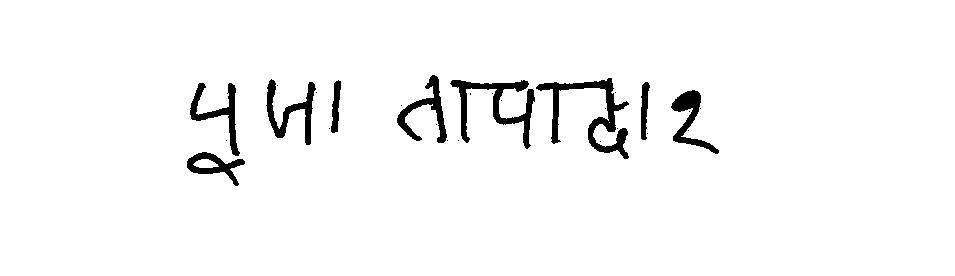 पूजा तापादार